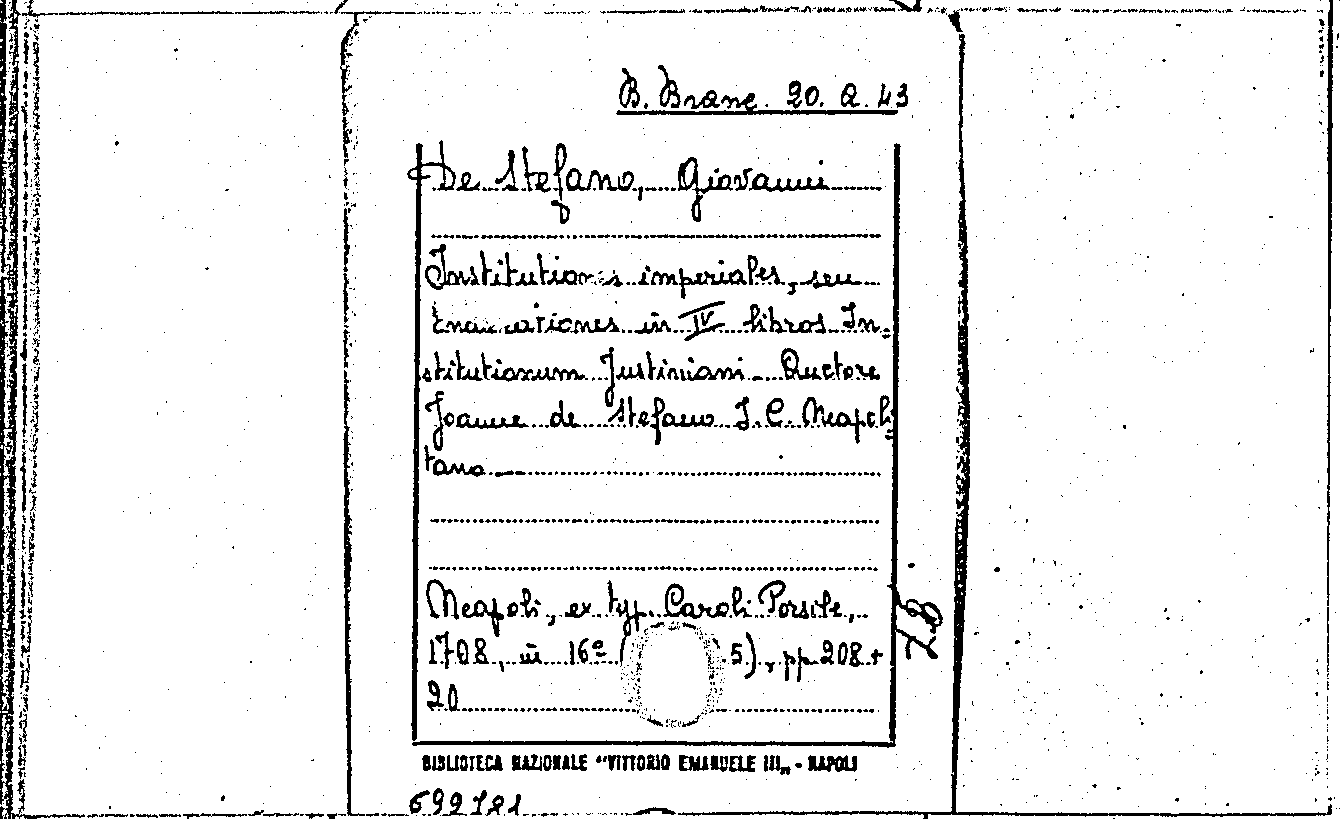 B. Branc. 20. Q. 43
De Stefano, Giovanni
Institutiones imperiales, seu
in IV libros In=
stitutionum Justiniani. Auctore
Joanne de Stefano J. C. Neapoli=
tano
Neapoli, ex typ. Caroli Porsile,
1708, in 16° ( 5), pp 208 +
20
BIBLIOTECA NAZIONALE "VITTORIO EMANUELE III„ - NAPOLI